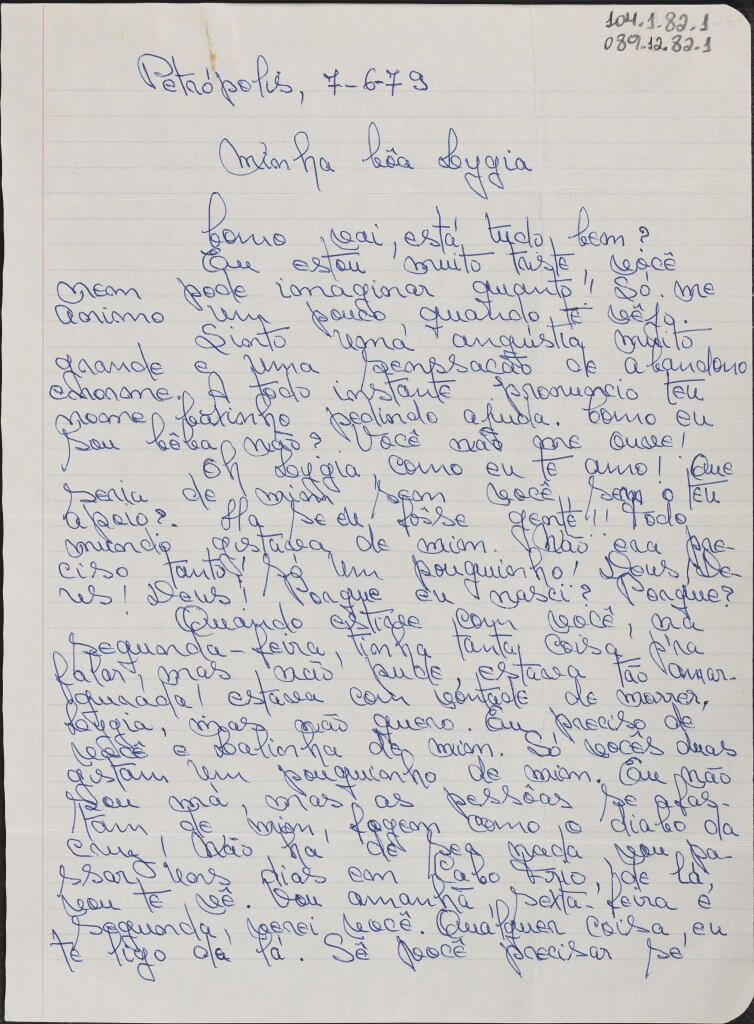 104.1.82.1
089.12.82.1
Petrópolis, 7-6-79
Minha bôa Lygia
Como vai, está tudo bem?
Eu estou muito triste, você
nem pode imaginar quanto!! Só me
animo um pouco quando te vêjo.
Sinto uma angústia muito
grande e uma senssação de abandono
enorme. A todo instante pronuncio teu
nome baixinho pedindo ajuda. Como eu
sou bôba não? Você não me ouve!
Oh Lygia, como eu te amo! Que
seria de mim sem você, sem o teu
apoio?. Ha se eu fôsse gente!!! Todo
mundo gostava de mim. Não era pre-
ciso tanto! Só um pouquinho! Deus! De-
us! Deus! Porque eu nasci? Porque?
Quando estive com você, na
segunda-feira, tinha tanta coisa p'ra
falar, mas não pude, estava tão amar-
gurada! estava com vontade de morrer,
Lygia, mas não quero. Eu preciso de
você e de mim. Só vocês duas
gostam um pouquinho de mim. Eu não
sou má, mas as pessôas se afas-
tam de mim, fogem como o diabo da
cruz! Não há de ser nada vou pa-
ssar uns dias em Cabo Frio, de lá,
vou te vê. Vou amanhã, sexta-feira e
segunda, verei você. Qualquer coisa, eu
te ligo da lá. Sê você precisar se